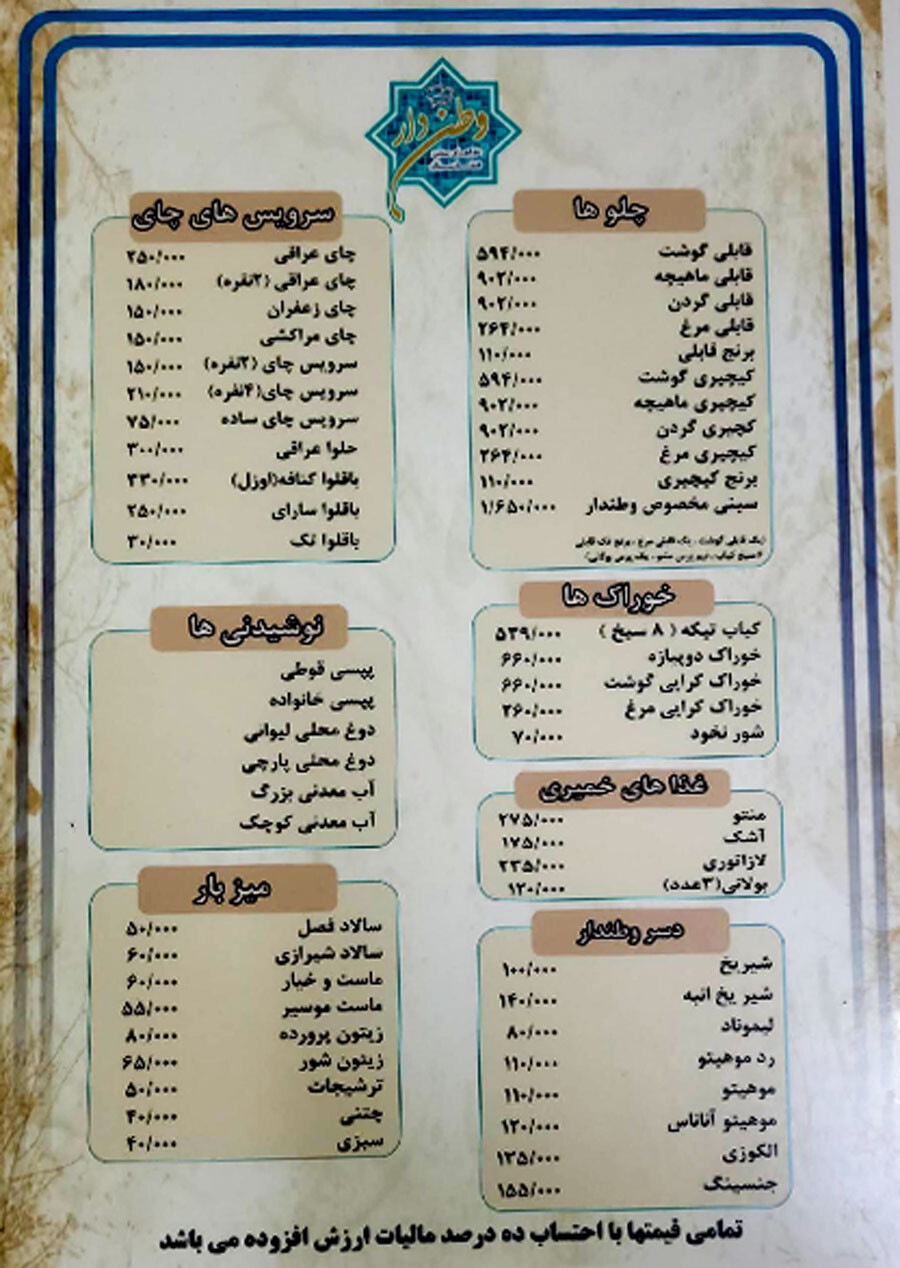 وطن دار
چلو ها
قابلی گوشت ۵۹۴/۰۰۰
قابلی ماهیچه ۹۰۲/۰۰۰
قابلی گردن ۹۰۲/۰۰۰
قابلی مرغ ۲۶۴/۰۰۰
برنج قابلی ۱۱۰/۰۰۰
کیچیری گوشت ۵۹۴/۰۰۰
کیچیری ماهیچه ۹۰۲/۰۰۰
کچیری گردن ۹۰۲/۰۰۰
کیچیری مرغ ۲۶۴/۰۰۰
برنج کیچیری ۱۱۰/۰۰۰
سینی مخصوص وطندار ۱/۶۵۰/۰۰۰
خوراک ها
کباب تیکه ( ۸ سیخ ) ۵۳۹/۰۰۰
خوراک دوپیازه ۶۶۰/۰۰۰
خوراک کرایی گوشت ۶۶۰/۰۰۰
خوراک کرایی مرغ ۲۶۰/۰۰۰
شور نخود ۷۰/۰۰۰
غذا های خمیری
منتو ۲۷۵/۰۰۰
آشک ۱۷۵/۰۰۰
لازانوری ۲۳۵/۰۰۰
بولانی(۳عدد) ۱۲۰/۰۰۰
دسر وطندار
شیریخ ۱۰۰/۰۰۰
شیر یخ انبه ۱۴۰/۰۰۰
لیموناد ۸۰/۰۰۰
رد موهیتو ۱۱۰/۰۰۰
موهیتو ۱۱۰/۰۰۰
موهیتو آناناس ۱۲۰/۰۰۰
الکوزی ۱۳۵/۰۰۰
جنسینگ ۱۵۵/۰۰۰
سرویس های چای
چای عراقی ۲۵۰/۰۰۰
چای عراقی (۲نفره) ۱۸۰/۰۰۰
چای زعفران ۱۵۰/۰۰۰
چای مراکشی ۱۵۰/۰۰۰
سرویس چای (۲نفره) ۱۵۰/۰۰۰
سرویس چای(۴نفره) ۲۱۰/۰۰۰
سرویس چای ساده ۷۵/۰۰۰
حلوا عراقی ۳۰۰/۰۰۰
باقلوا کنافه(اوزل) ۳۳۰/۰۰۰
باقلوا سارای ۲۵۰/۰۰۰
باقلوا تک ۳۰/۰۰۰
نوشیدنی ها
پپسی قوطی
پپسی خانواده
دوغ محلی لیوانی
دوغ محلی پارچی
آب معدنی بزرگ
آب معدنی کوچک
میز بار
سالاد فصل ۵۰/۰۰۰
سالاد شیرازی ۶۰/۰۰۰
ماست و خیار ۶۰/۰۰۰
ماست موسیر ۵۵/۰۰۰
زیتون پرورده ۸۰/۰۰۰
زیتون شور ۶۵/۰۰۰
ترشیجات ۵۰/۰۰۰
چتنی ۴۰/۰۰۰
سبزی ۴۰/۰۰۰
تمامی قیمتها با احتساب ده درصد مالیات ارزش افزوده می باشد